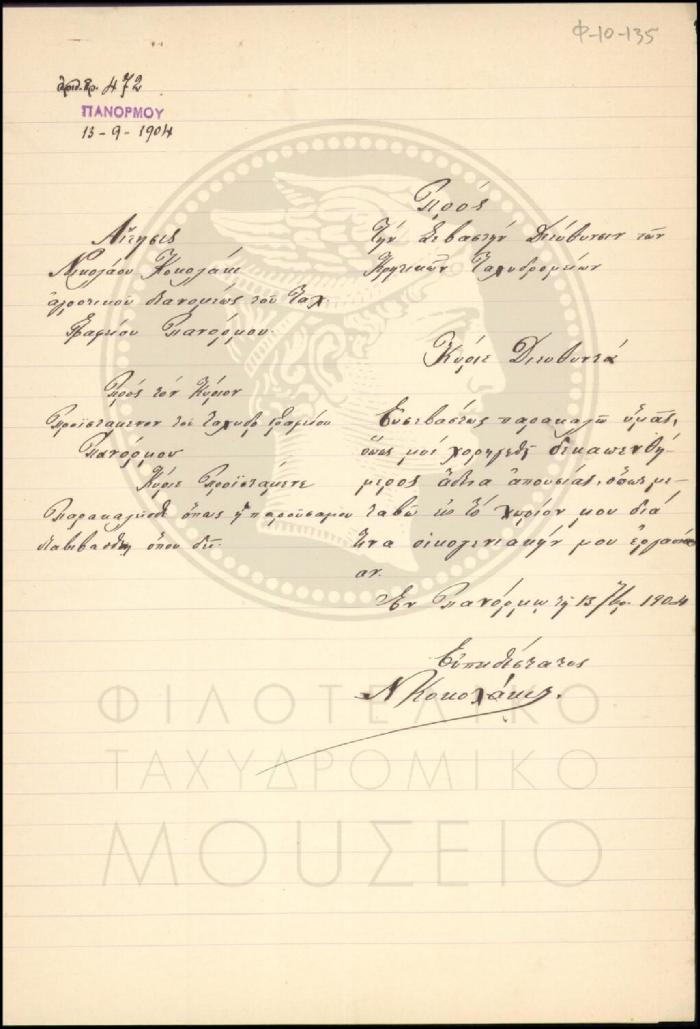 Φ-10-135
αριθ. πρ. 472
ΠΑΝΟΡΜΟΥ
13-9-1904
Αἴτησις
Νικολάου Κοκολάκι
ἀγροτικοῦ διανομέως τοῦ Ταχ.
Γραφείου Πανόρμου.
Πρός τόν Κύριον
Προϊστάμενον τοῦ Ταχυδρ Γραφείου
Πανόρμου
Κύριε Προϊστάμενε
Παρακαλεῖσθε ὅπως ἡ παροῦσα μου
διαβιβασθῇ ὅπου δεῖ.
Πρός
Τήν Σεβαστήν Διεύθυνσιν τῶν
Κρητικῶν Ταχυδρομείων
Κύριε Διευθυντά
Εὐσεβάστως παρακαλῶ ὑμᾶς,
ὅπως μοί χορηγηθῇ δεκαπενθή-
μερος ἄδεια ἀπουσίας, ὅπως με-
ταβῶ εἰς τό χωρίον μου διά
τινα οἰκογενιακήν μου ἐργασί-
αν.
Ἐν Πανόρμῳ τῇ 13 7/βρ. 1904
Εὐπειθέστατος
Ν Κοκολάκις.
ΦΙΛΟΤΕΛΙΚΟ
ΤΑΧΥΔΡΟΜΙΚΟ
ΜΟΥΣΕΙΟ